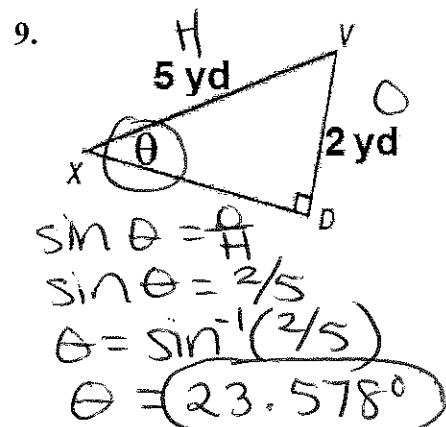 9.
H
V
5 yd
O
θ
2 yd
X
D
sin θ = O/H
sin θ = 2/5
θ = sin⁻¹(2/5)
θ = 23.578°